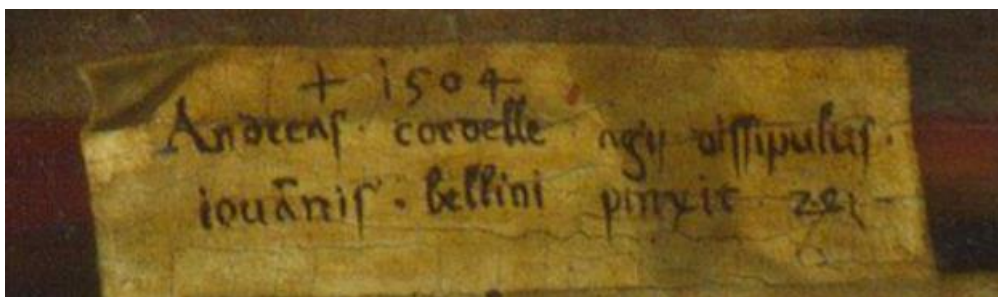 + 1504
Andreas · cordelle · agij dissipulus ·
iouānis · bellini pinxit · 24